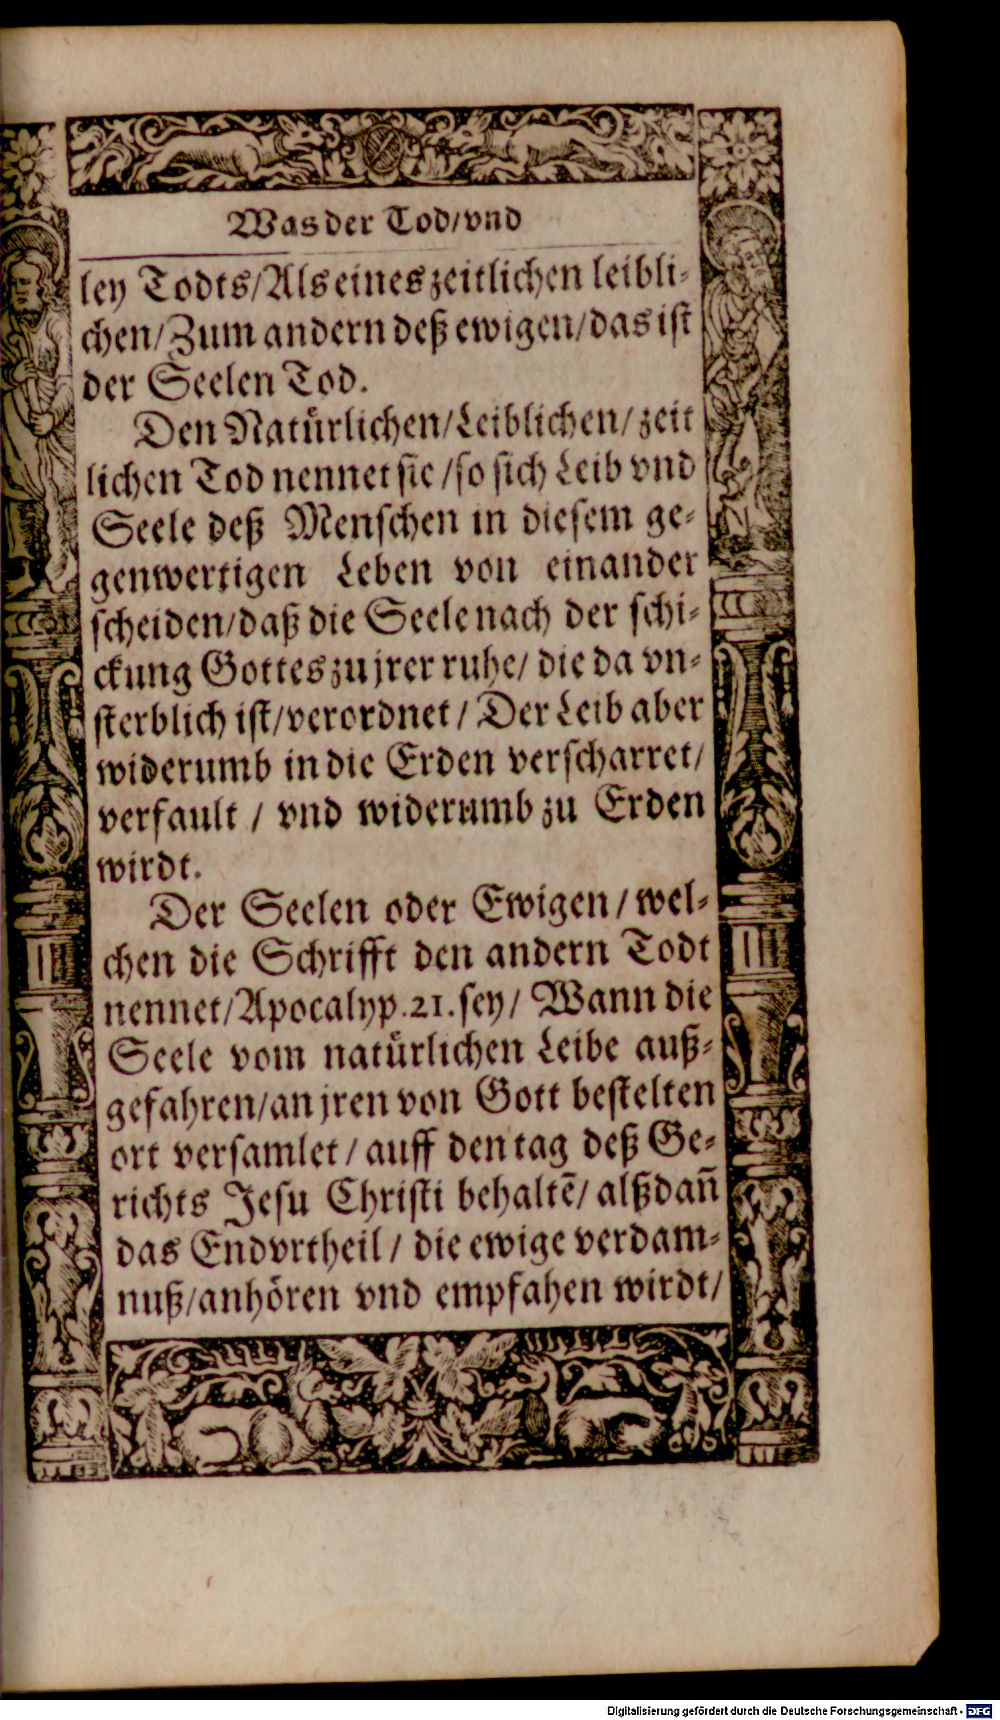 Was der Tod/vnd
ley Todts/Als eines zeitlichen leibli-
chen/Zum andern deß ewigen/das ist
der Seelen Tod.
Den Natürlichen/Leiblichen/zeit
lichen Tod nennet sie/so sich Leib vnd
Seele deß Menschen in diesem ge-
genwertigen Leben von einander
scheiden/daß die Seele nach der schi-
ckung Gottes zu jrer ruhe/die da vn-
sterblich ist/verordnet/Der Leib aber
widerumb in die Erden verscharret/
verfault/vnd widerumb zu Erden
wirdt.
Der Seelen oder Ewigen/wel-
chen die Schrifft den andern Todt
nennet/Apocalyp.21.sey/Wann die
Seele vom natürlichen Leibe auß-
gefahren/an jren von Gott bestelten
ort versamlet/auff den tag deß Ge-
richts Jesu Christi behaltē/alßdañ
das Endvrtheil/die ewige verdam-
nuß/anhören vnd empfahen wirdt/
Digitalisierung gefördert durch die Deutsche Forschungsgemeinschaft - DFG